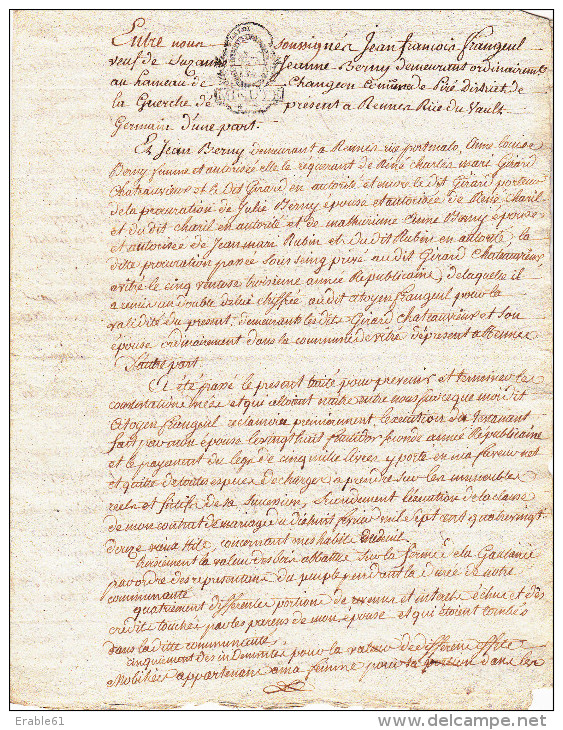 Entre nous soussignés Jean francois frangeul
veuf de Suzanne Jeanne Berny demeurant ordinairem.t
au hameau de Changeon Commune de Piré district de
la Guerche de present a Rennes Rue du Vault
Germain d'une part.
Et Jean Berny demeurant a Rennes rue portmalo, anne louise
Berny femme et autorisée elle le requerant de René Charles mare Girard
Chateauvieux et le dit Girard en autorité et encore le dit Girard porteur
de la procuration de Julie Berny epouse et autorisée de René Charil
et du dit charil en autorité et de mathurinne anne Berny epouse
et autorisée de Jean mari Rubin et du dit Rubin en autorité, la
ditte procuration passée sous seing privé au dit Girard Chateauvieux
a vitré le cinq vantose troisieme année Republicaine, de laquelle il
a remis un double delui chiffrée au dit citoyen frangeul pour la
validité du present, demeurant les dits Girard Chateauvieux et son
epouse ordinairement dans la commune de vitré de present a Rennes
D'autre part
a été passé le present traité pour prevenir et terminer les
contestations et qui alloient naitre entre nous sur ce que moi dit
citoyen frangeul reclamois premierement, l'execution du Testament
fait par mon epouse le vingt huit seconde année Republicaine
et le payement du legs de cinq mille livres y porté en ma faveur net
et quitte de toutes especes de charges a prendre sur les immeubles
reels et fictifs de sa succession, secondement l'execution de la clause
de mon contrat de mariage du dix huit mil sept cent quatrevingt
douze vieux stile, concernant mes habits de deuil
troisiement la valeur des bois abattus sur la ferme de la
par ordre des representans du peuple pendant la durée de notre
communauté
quatriement differentes portions de revenus et interets echus et des
credits touchés par les parens de mon epouse et qui étoient tombés
dans la ditte communauté
cinquiement des indemnités pour la valeur de differens effets
Mobiliers appartenant a ma femme pour sa portion dans les
Erable61
delcampe.net